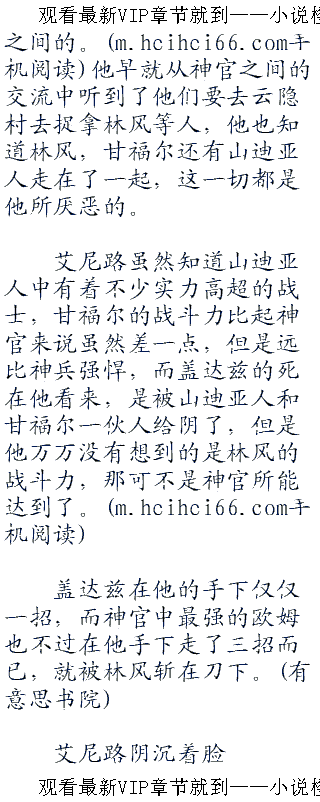 观看最新VIP章节就到——小说检
之间的。(m.hcihci66.com手
机阅读)他早就从神官之间的
交流中听到了他们要去云隐
村去捉拿林风等人，他也知
道林风，甘福尔还有山迪亚
人走在了一起，这一切都是
他所厌恶的。
艾尼路虽然知道山迪亚
人中有着不少实力高超的战
士，甘福尔的战斗力比起神
官来说虽然差一点，但是远
比神兵强悍，而盖达兹的死
在他看来，是被山迪亚人和
甘福尔一伙人给阴了，但是
他万万没有想到的是林风的
战斗力，那可不是神官所能
达到了。(m.hcihci66.com手
机阅读)
盖达兹在他的手下仅仅
一招，而神官中最强的欧姆
也不过在他手下走了三招而
已，就被林风斩在刀下。(有
意思书院)
艾尼路阴沉着脸
观看最新VIP章节就到——小说检